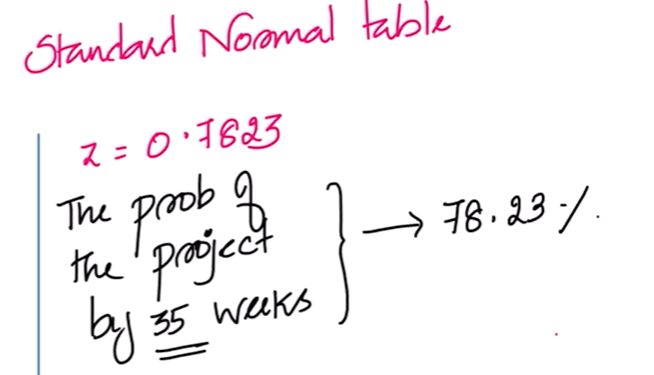 Standard Normal table
z = 0.7823
The prob of
the project
by 35 weeks
→ 78.23 %.